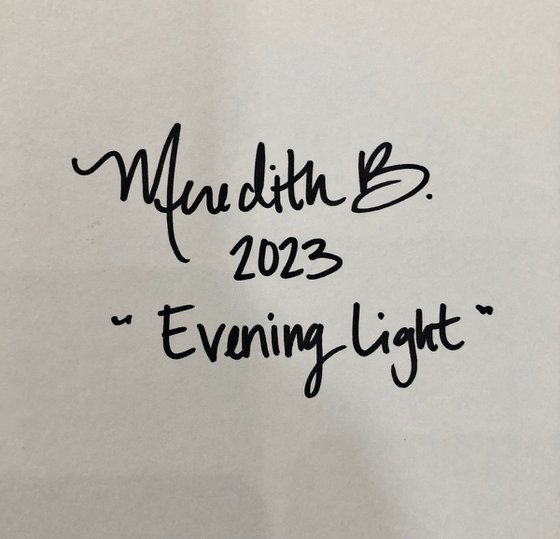 Meredith B.
2023
" Evening Light "